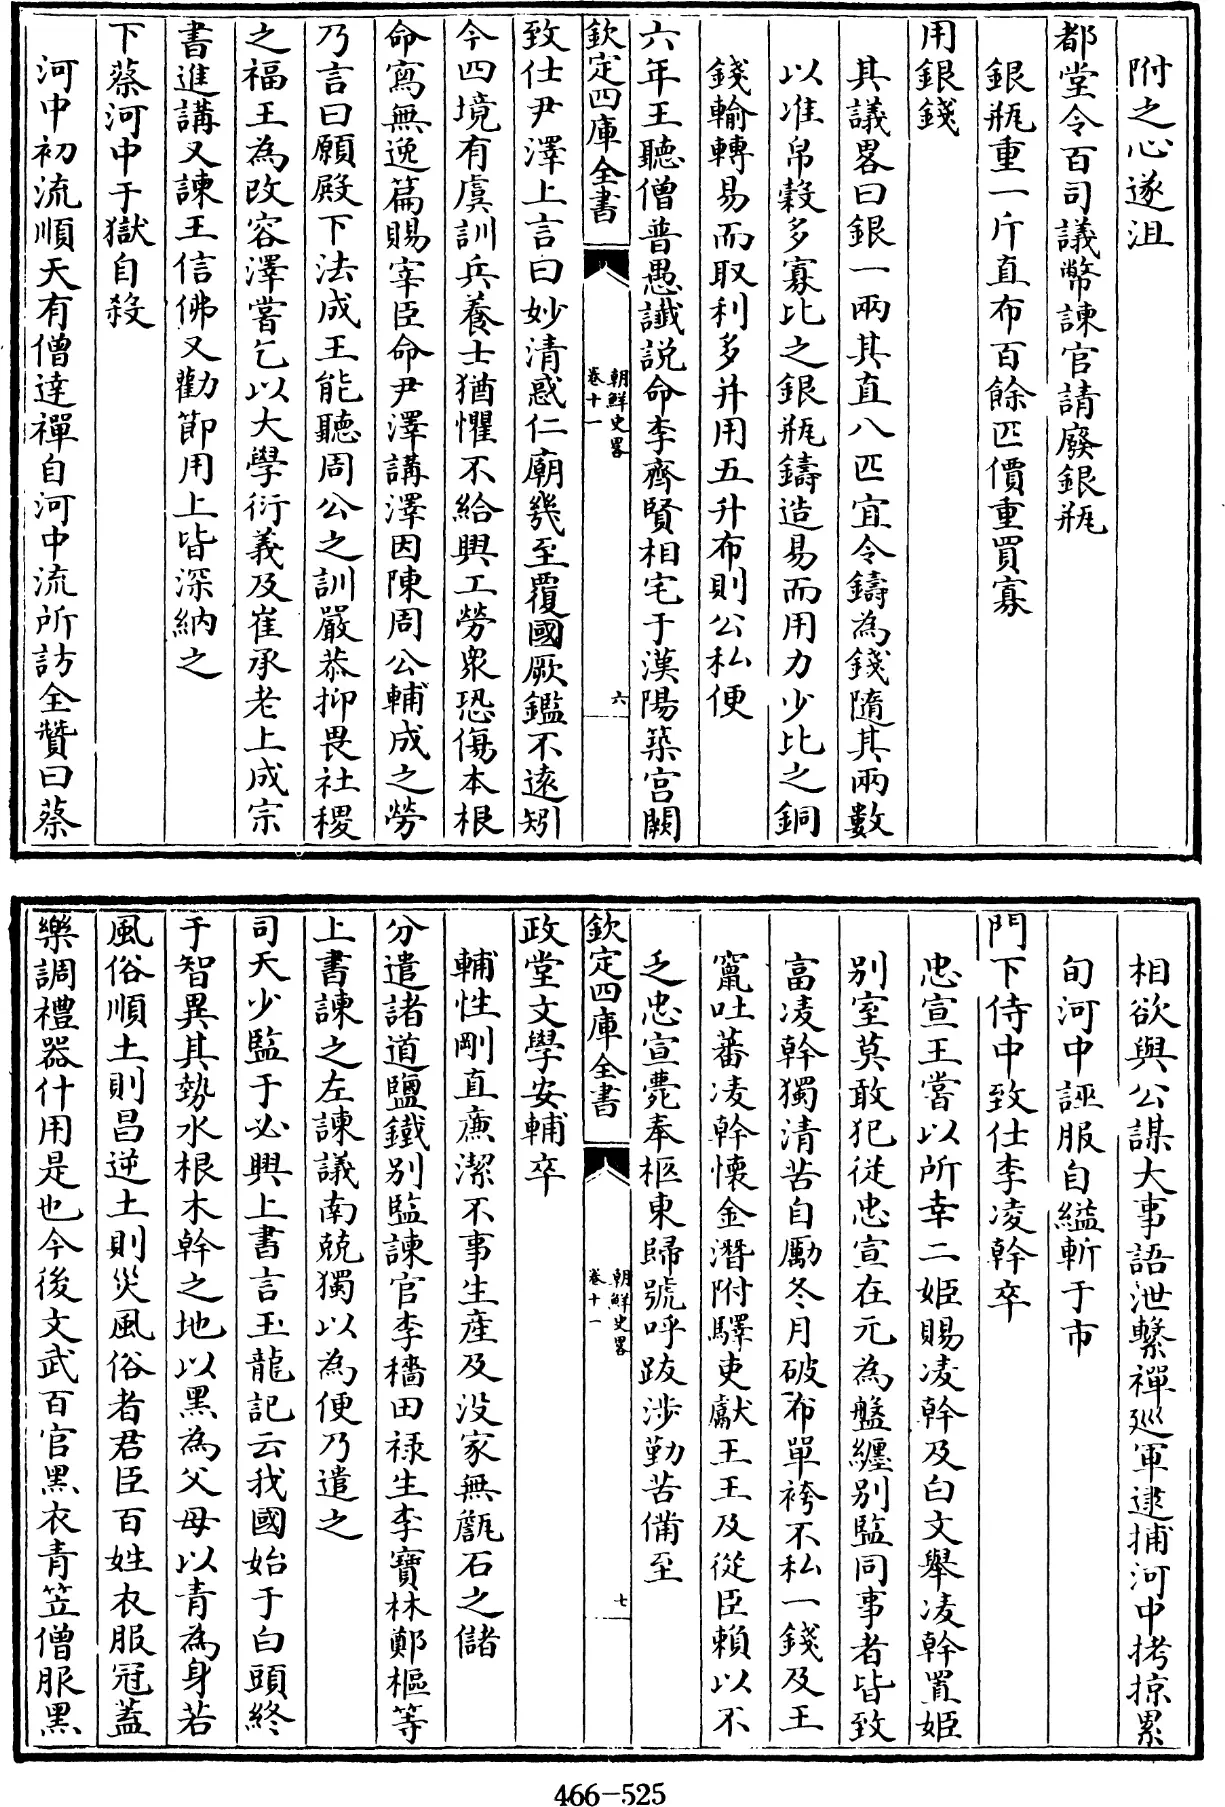 附之心遂沮
都堂令百司議幣諫官請廢銀瓶
銀瓶重一斤直布百餘匹價重買寡
用銀錢
其議畧曰銀一兩其直八匹宜令鑄為錢隨其兩數
以准帛穀多寡比之銀瓶鑄造易而用力少比之銅
錢輸轉易而取利多并用五升布則公私便
六年王聽僧普愚讖説命李齊賢相宅于漢陽築宫闕
欽定四庫全書
朝鮮史畧
卷十一
六
致仕尹澤上言曰妙清惑仁廟幾至覆國厥鑑不逺矧
今四境有虞訓兵養士猶懼不給興工勞衆恐傷本根
命寫無逸篇賜宰臣命尹澤講澤因陳周公輔成之勞
乃言曰願殿下法成王能聽周公之訓嚴恭抑畏社稷
之福王為改容澤嘗乞以大學衍義及崔承老上成宗
書進講又諫王信佛又勸節用上皆深納之
下蔡河中于獄自殺
河中初流順天有僧達禪自河中流所訪全贊曰蔡
相欲與公謀大事語泄繫禪巡軍逮捕河中拷掠累
旬河中誣服自縊斬于市
門下侍中致仕李凌幹卒
忠宣王嘗以所幸二姬賜凌幹及白文舉凌幹置姬
别室莫敢犯從忠宣在元為盤纒别監同事者皆致
富凌幹獨清苦自勵冬月破布單袴不私一錢及王
竄吐蕃凌幹懷金潛附驛吏獻王王及從臣賴以不
乏忠宣薨奉柩東歸號呼跋涉勤苦備至
欽定四庫全書
朝鮮史畧
卷十一
七
政堂文學安輔卒
輔性剛直亷潔不事生産及没家無甔石之儲
分遣諸道鹽鐵别監諫官李穡田禄生李寶林鄭樞等
上書諫之左諫議南兢獨以為便乃遣之
司天少監于必興上書言玉龍記云我國始于白頭終
于智異其勢水根木幹之地以黑為父母以青為身若
風俗順土則昌逆土則災風俗者君臣百姓衣服冠蓋
樂調禮器什用是也今後文武百官黑衣青笠僧服黑
466-525